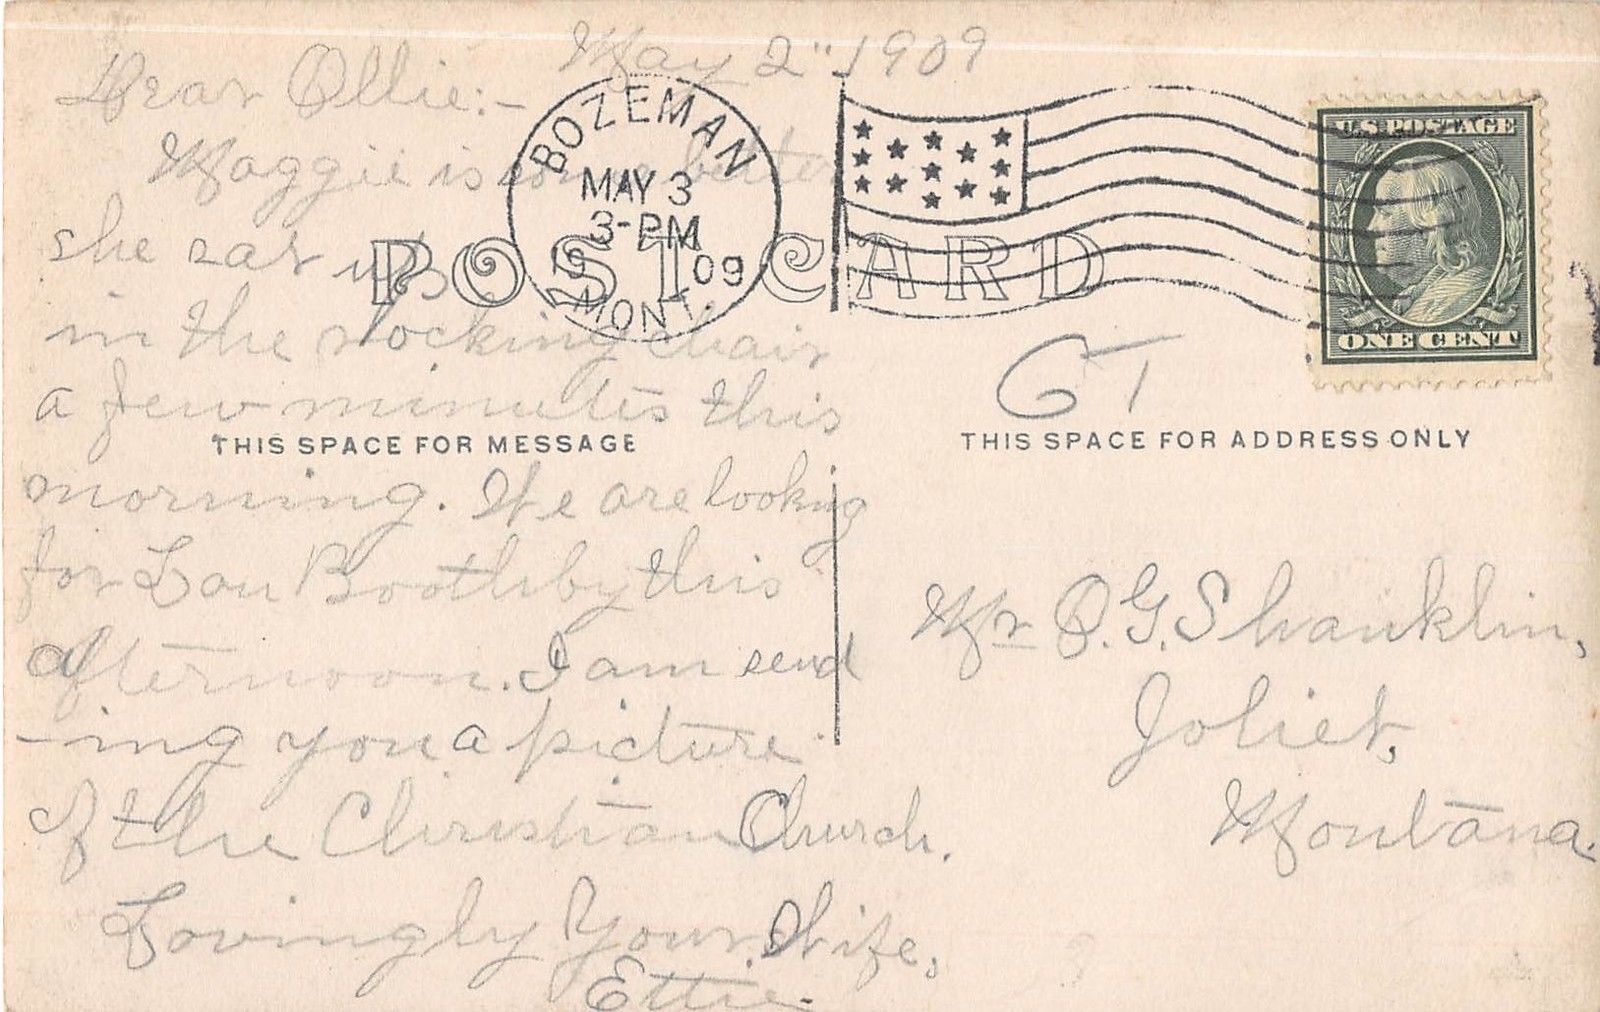 May 2" 1909
Dear Ollie:-
Maggie is some better
she sat up
in the rocking chair
a few minutes this
morning. We are looking
for Lou Boothby this
afternoon. I am send
-ing you a picture
of the Christian Church.
Lovingly Your Wife,
Ettie.
BOZEMAN
MAY 3
3-PM
09
MONT.
POST CARD
U.S. POSTAGE
ONE CENT
THIS SPACE FOR MESSAGE
THIS SPACE FOR ADDRESS ONLY
Mr O.G. Shanklin,
Joliet,
Montana.